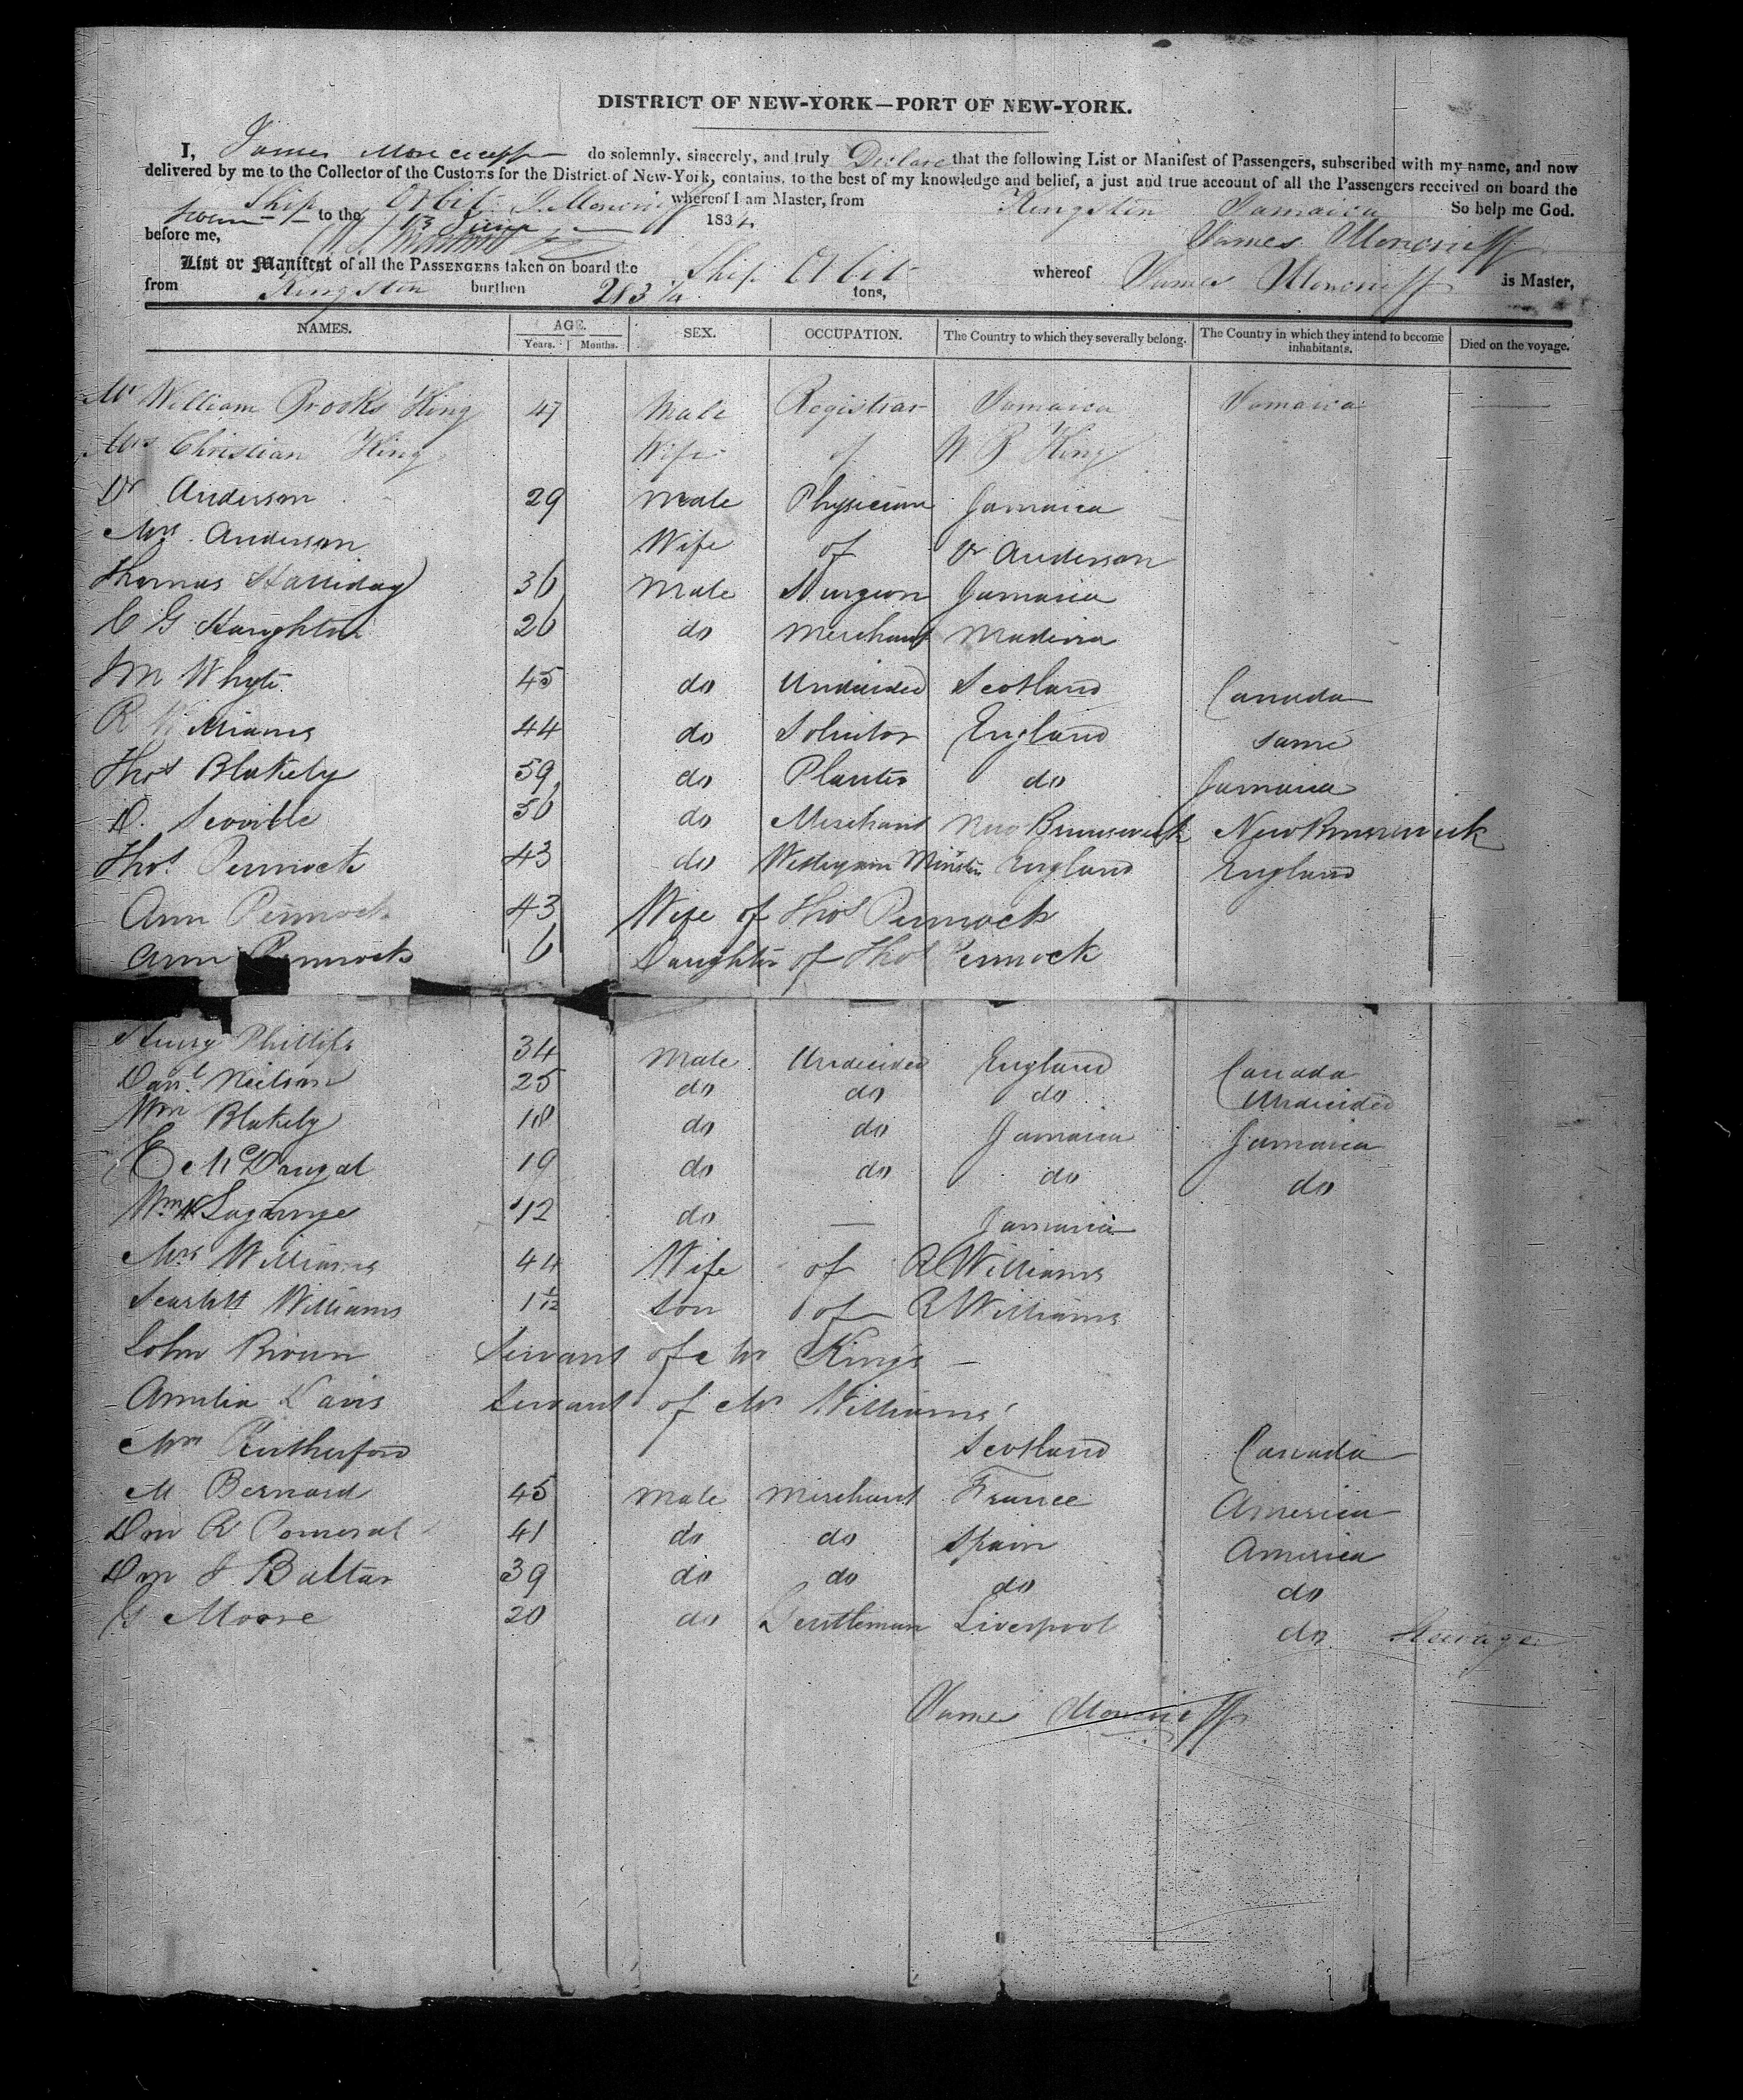 DISTRICT OF NEW-YORK—PORT OF NEW-YORK.
I, James Moncrieff do solemnly, sincerely, and truly Declare that the following List or Manifest of Passengers, subscribed with my name, and now
delivered by me to the Collector of the Customs for the District of New-York, contains, to the best of my knowledge and belief, a just and true account of all the Passengers received on board the
Ship Orbit J. Moncrieff whereof I am Master, from Kingston Jamaica So help me God.
Sworn to the 13 June 1834.
before me, James Moncrieff
List or Manifest of all the PASSENGERS taken on board the Ship Orbit whereof James Moncrieff is Master,
from Kingston burthen tons,
NAMES. AGE. SEX. OCCUPATION. The Country to which they severally belong. The Country in which they intend to become inhabitants. Died on the voyage.
Years. Months.
Mr William Brooks King 47 Male Registrar Jamaica Jamaica —
Mrs Christian King Wife of W B King
Dr Anderson 29 Male Physician Jamaica
Mrs Anderson Wife of Dr Anderson
Thomas Halliday 36 Male Surgeon Jamaica
C G Haughton 26 do Merchant Madeira
Whyte 45 do Undecided Scotland Canada
R Williams 44 do Solicitor England Same
Thos Blakely 59 do Planter do Jamaica
D. Scoville 56 do Merchant New Brunswick New Brunswick
Thos Pennock 43 do Wesleyan Minister England England
Ann Pennock 43 Wife of Thos Pennock
Ann Pennock 6 Daughter of Thos Pennock
Henry Phillips 34 Male Undecided England Canada
Danl Neilson 25 do do do Undecided
Wm Blakely 18 do do Jamaica Jamaica
E McDougal 19 do do do do
Wm Lagrange 12 do — Jamaica
Mrs Williams 44 Wife of R Williams
Scarlett Williams 1 1/12 Son of R Williams
John Brown Servant of Mr Kings —
Amelia Davis Servant of Mr Williams'
Rutherford Scotland Canada
M Bernard 45 Male Merchant France America
Don R Pomeral 41 do do Spain America
Don J Baltar 39 do do do do
G Moore 20 do Gentleman Liverpool do Steerage
James Moncrieff